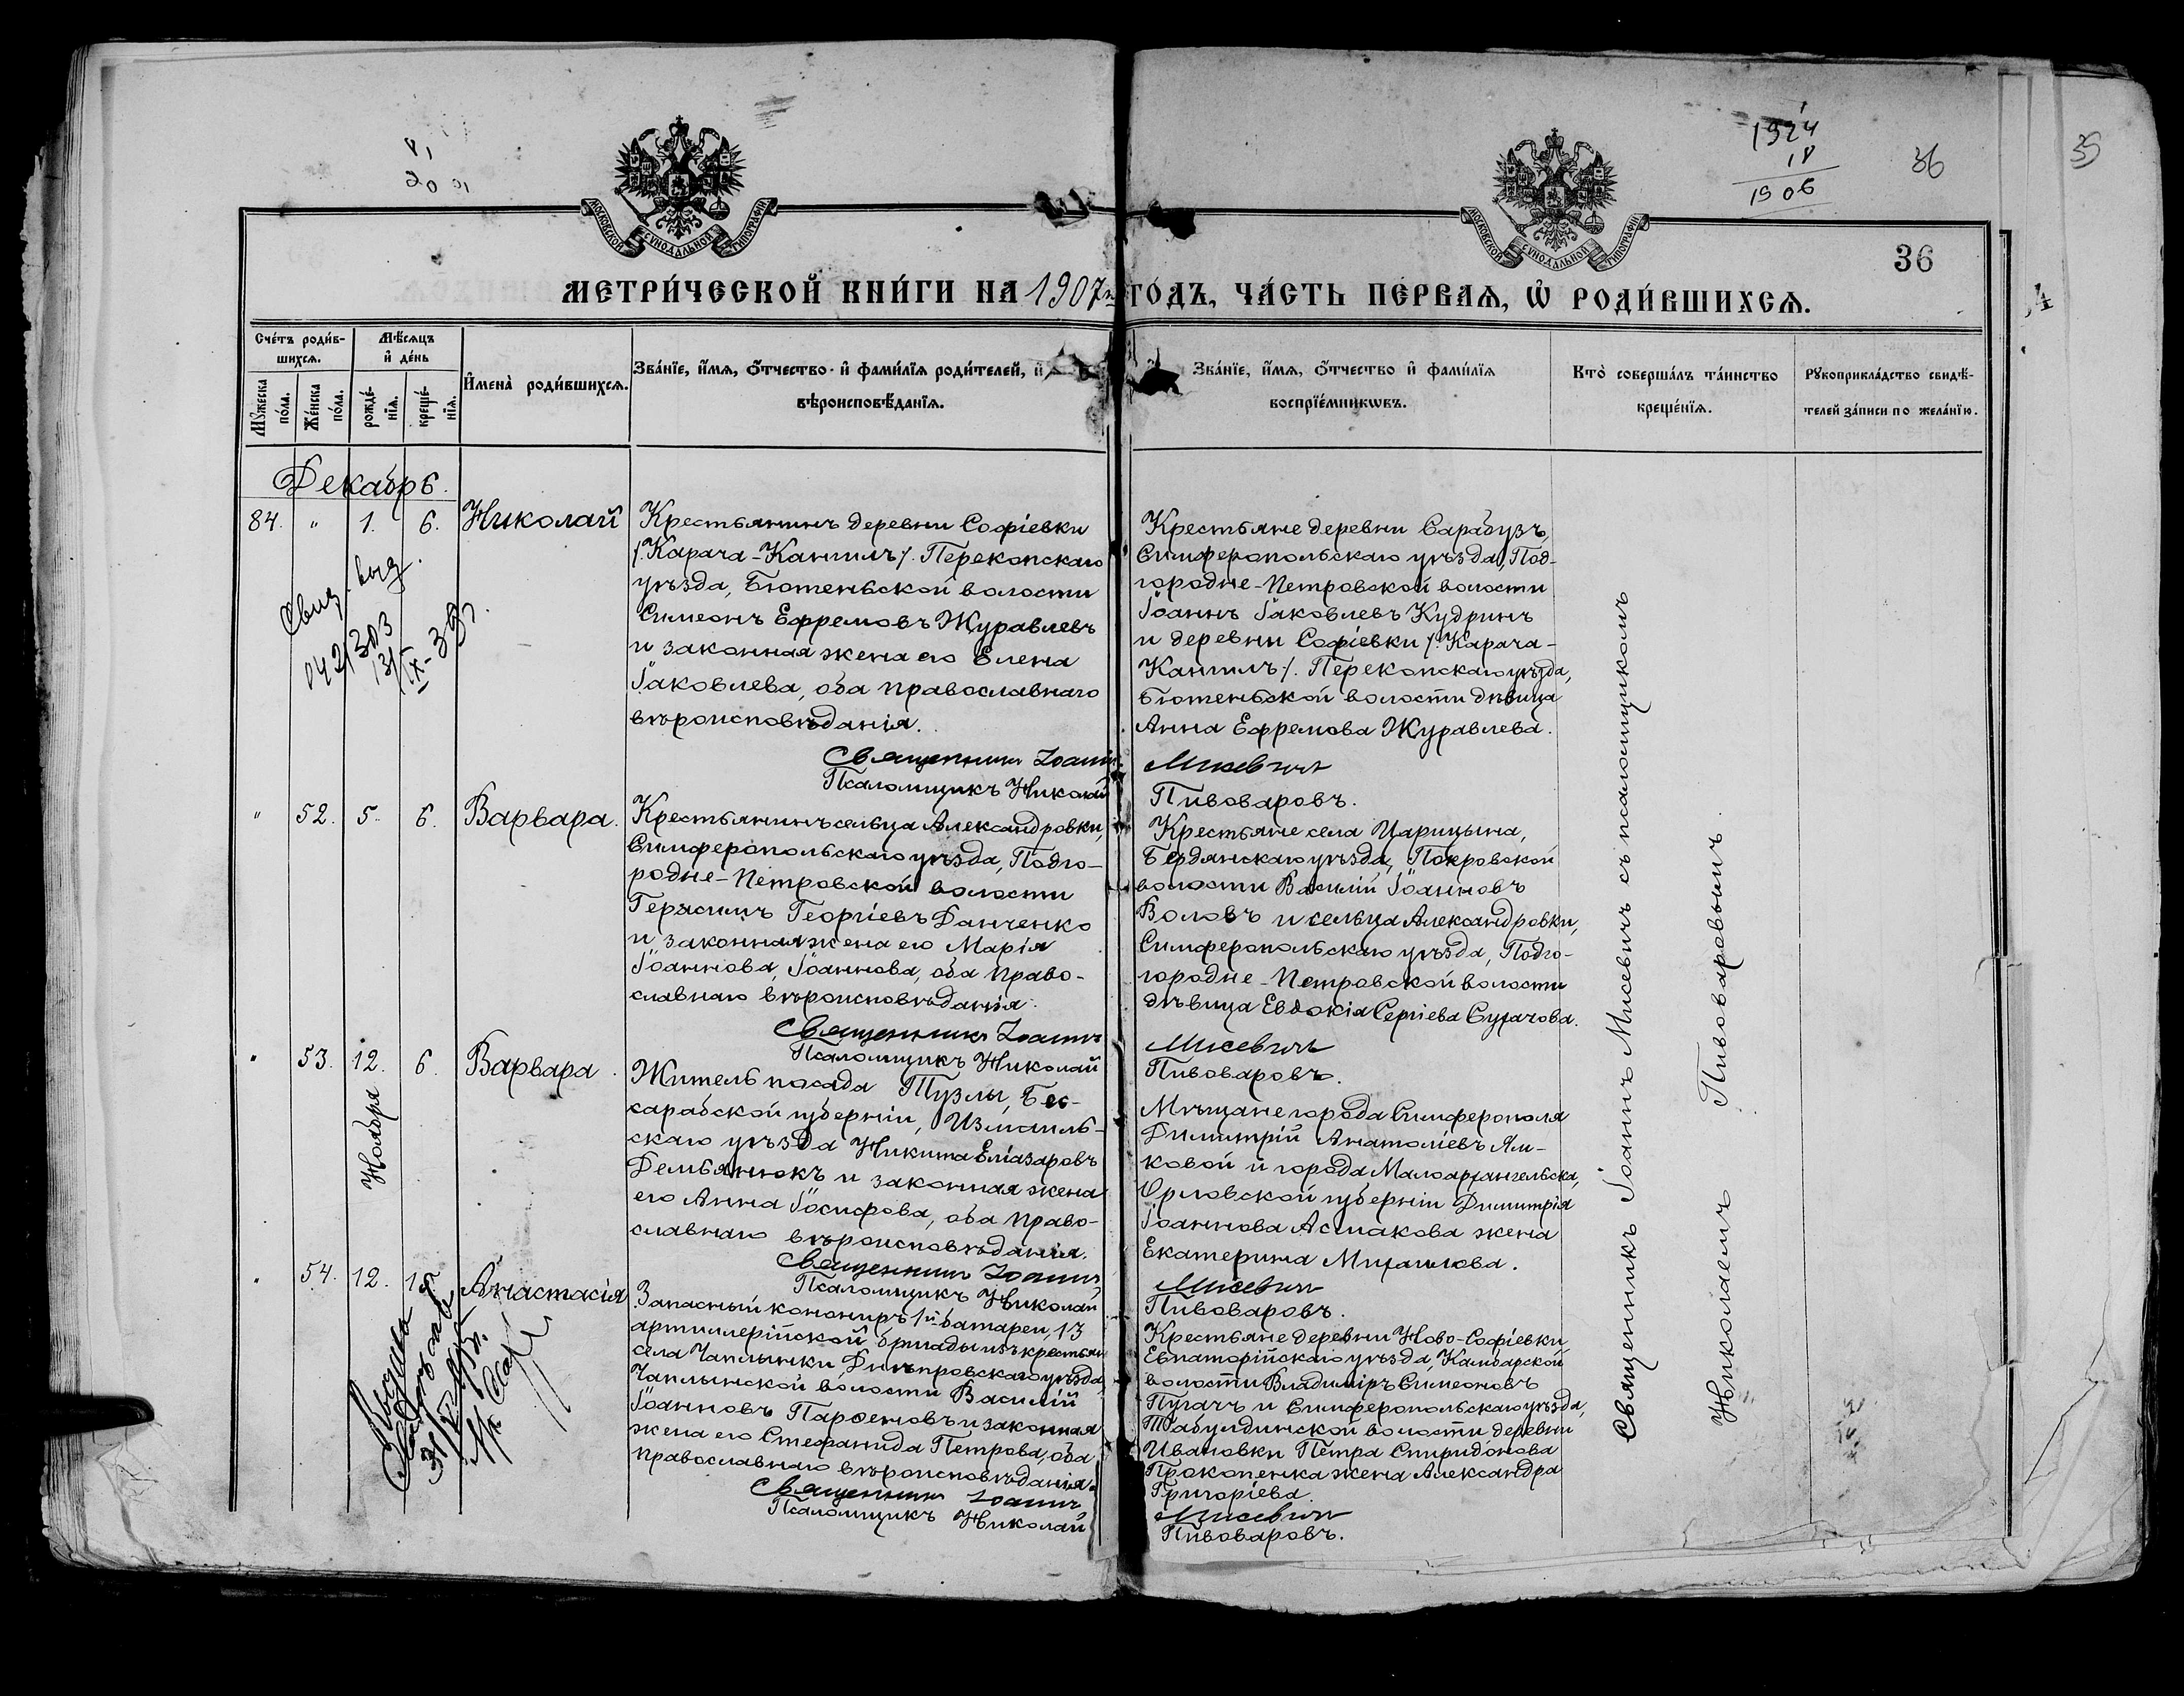 1924
18
1906
36
35
МОСКОВСКОЙ СУНОДАЛЬНОЙ ТИПОГРАФІИ
МОСКОВСКОЙ СУНОДАЛЬНОЙ ТИПОГРАФІИ
36
МЕТРИ́ЧЕСКОЙ КНИ́ГИ НА 1907 й ГО́ДЪ, ЧА́СТЬ ПЕ́РВАѦ, Ѡ҆ РОДИ́ВШИХСѦ.
Сче́тъ роди́в-
шихсѧ.
Мѣ́сѧцъ
и҆ де́нь
Мꙋ́жеска
по́ла.
Же́нска
по́ла.
рожде́-
нїѧ.
креще́-
нїѧ.
И҆мена̀ роди́вшихсѧ.
Зва́нїе, и҆́мѧ, ѻ҆́тчество и҆ фами́лїѧ роди́телей, и҆
вѣроисповѣ́данїѧ.
Зва́нїе, и҆́мѧ, ѻ҆́тчество и҆ фами́лїѧ
воспрїе́мникѡвъ.
Кто̀ соверша́лъ та́инство
креще́нїѧ.
Рꙋкоприкла́дство свидѣ́-
телей за́писи по жела́нїю.
Декабрь.
84. " 1. 6. Николай
Крестьянинъ деревни Софіевки
/:Карача-Кангилъ:/ Перекопскаго
уѣзда, Бютеньской волости
Симеонъ Ефремовъ Журавлевъ
и законная жена его Елена
Іаковлева, оба православнаго
вѣроисповѣданія.
Крестьяне деревни Сарабузъ,
Симферопольскаго уѣзда, Под-
городне-Петровской волости
Іоаннъ Іаковлевъ Кудринъ
и деревни Софіевки /:Карача-
Кангилъ:/ Перекопскаго уѣзда,
Бютеньской волости дѣвица
Анна Ефремова Журавлева.
Свид. выд.
31/IX-39
Священникъ Іоаннъ Мисевичъ
Псаломщикъ Николай Пивоваровъ.
" 52. 5. 6. Варвара.
Крестьянинъ сельца Александровки,
Симферопольскаго уѣзда, Подго-
родне-Петровской волости
Герасимъ Георгіевъ Данченко
и законная жена его Марія
Іоаннова, Іоаннова, оба право-
славнаго вѣроисповѣданія.
Крестьяне села Царицына,
Бердянскаго уѣзда, Покровской
волости Василій Іоанновъ
Воловъ и сельца Александровки,
Симферопольскаго уѣзда, Подго-
городне-Петровской волости
дѣвица Евдокія Сергіева Сугачова.
Священникъ Іоаннъ Мисевичъ
Псаломщикъ Николай Пивоваровъ.
" 53. 12. 6. Варвара.
Ноября
Житель посада Тузлы, Бес-
сарабской губерніи, Измаиль-
скаго уѣзда Никита Еліазаровъ
Демьянюкъ и законная жена
его Анна Іосифова, оба право-
славнаго вѣроисповѣданія.
Мѣщане города Симферополя
Димитрій Анатоліевъ Ям-
ковой и города Малоархангельска,
Орловской губерніи Димитрія
Іоаннова Асмакова жена
Екатерина Михаилова.
Священникъ Іоаннъ Мисевичъ
Псаломщикъ Николай Пивоваровъ.
" 54. 12. 15 Анастасія
Запасный кононеръ 1й батареи, 13
артиллерійской бригады изъ крестьян
села Чаплынки Днѣпровскаго уѣзда,
Чаплынской волости Василій
Іоанновъ Парѳеновъ и законная
жена его Стефанида Петрова, оба
православнаго вѣроисповѣданія.
Крестьяне деревни Ново-Софіевки,
Евпаторійскаго уѣзда, Камбарской
волости Владиміръ Симеоновъ
Пугачъ и Симферопольскаго уѣзда,
Табулдинской волости деревни
Ивановки Петра Спиридонова
Прокопенка жена Александра
Григоріева.
Священникъ Іоаннъ Мисевичъ
Псаломщикъ Николай Пивоваровъ.
Священникъ Іоаннъ Мисевичъ съ псаломщикомъ
Николаемъ Пивоваровымъ.